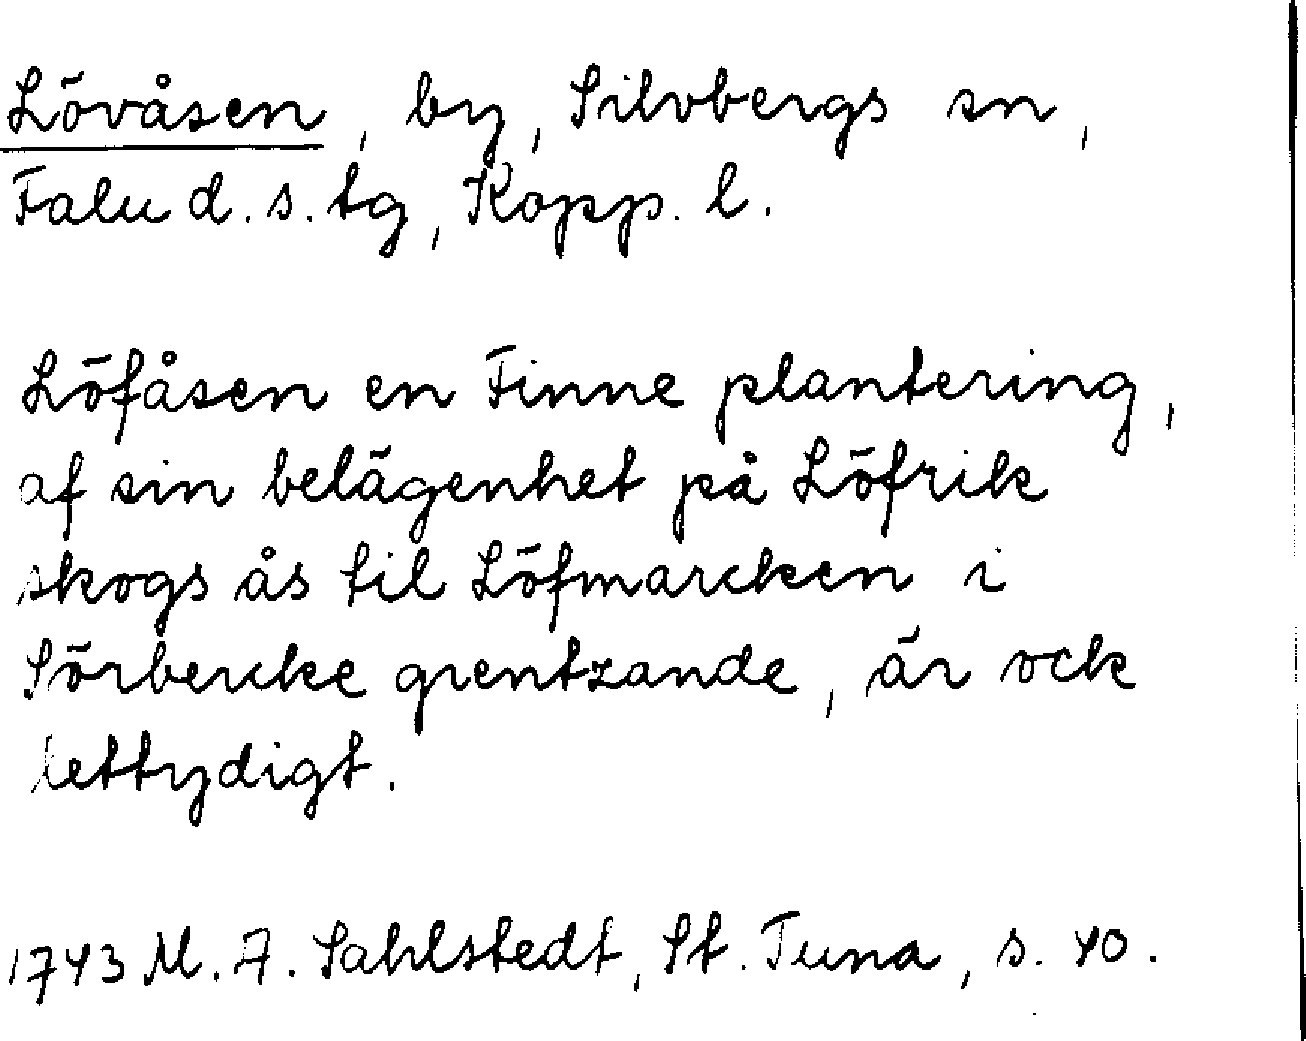 Lövåsen, by, Silvbergs sn,
Falu d. s. tg, Kopp. l.
Löfåsen en Finne plantering,
af sin belägenhet på Löfrik
skogs ås til Löfmarcken i
Sörbercke grentzande, är ock
lettydigt.
1743 M. A. Sahlstedt, St. Tuna, s. 40.